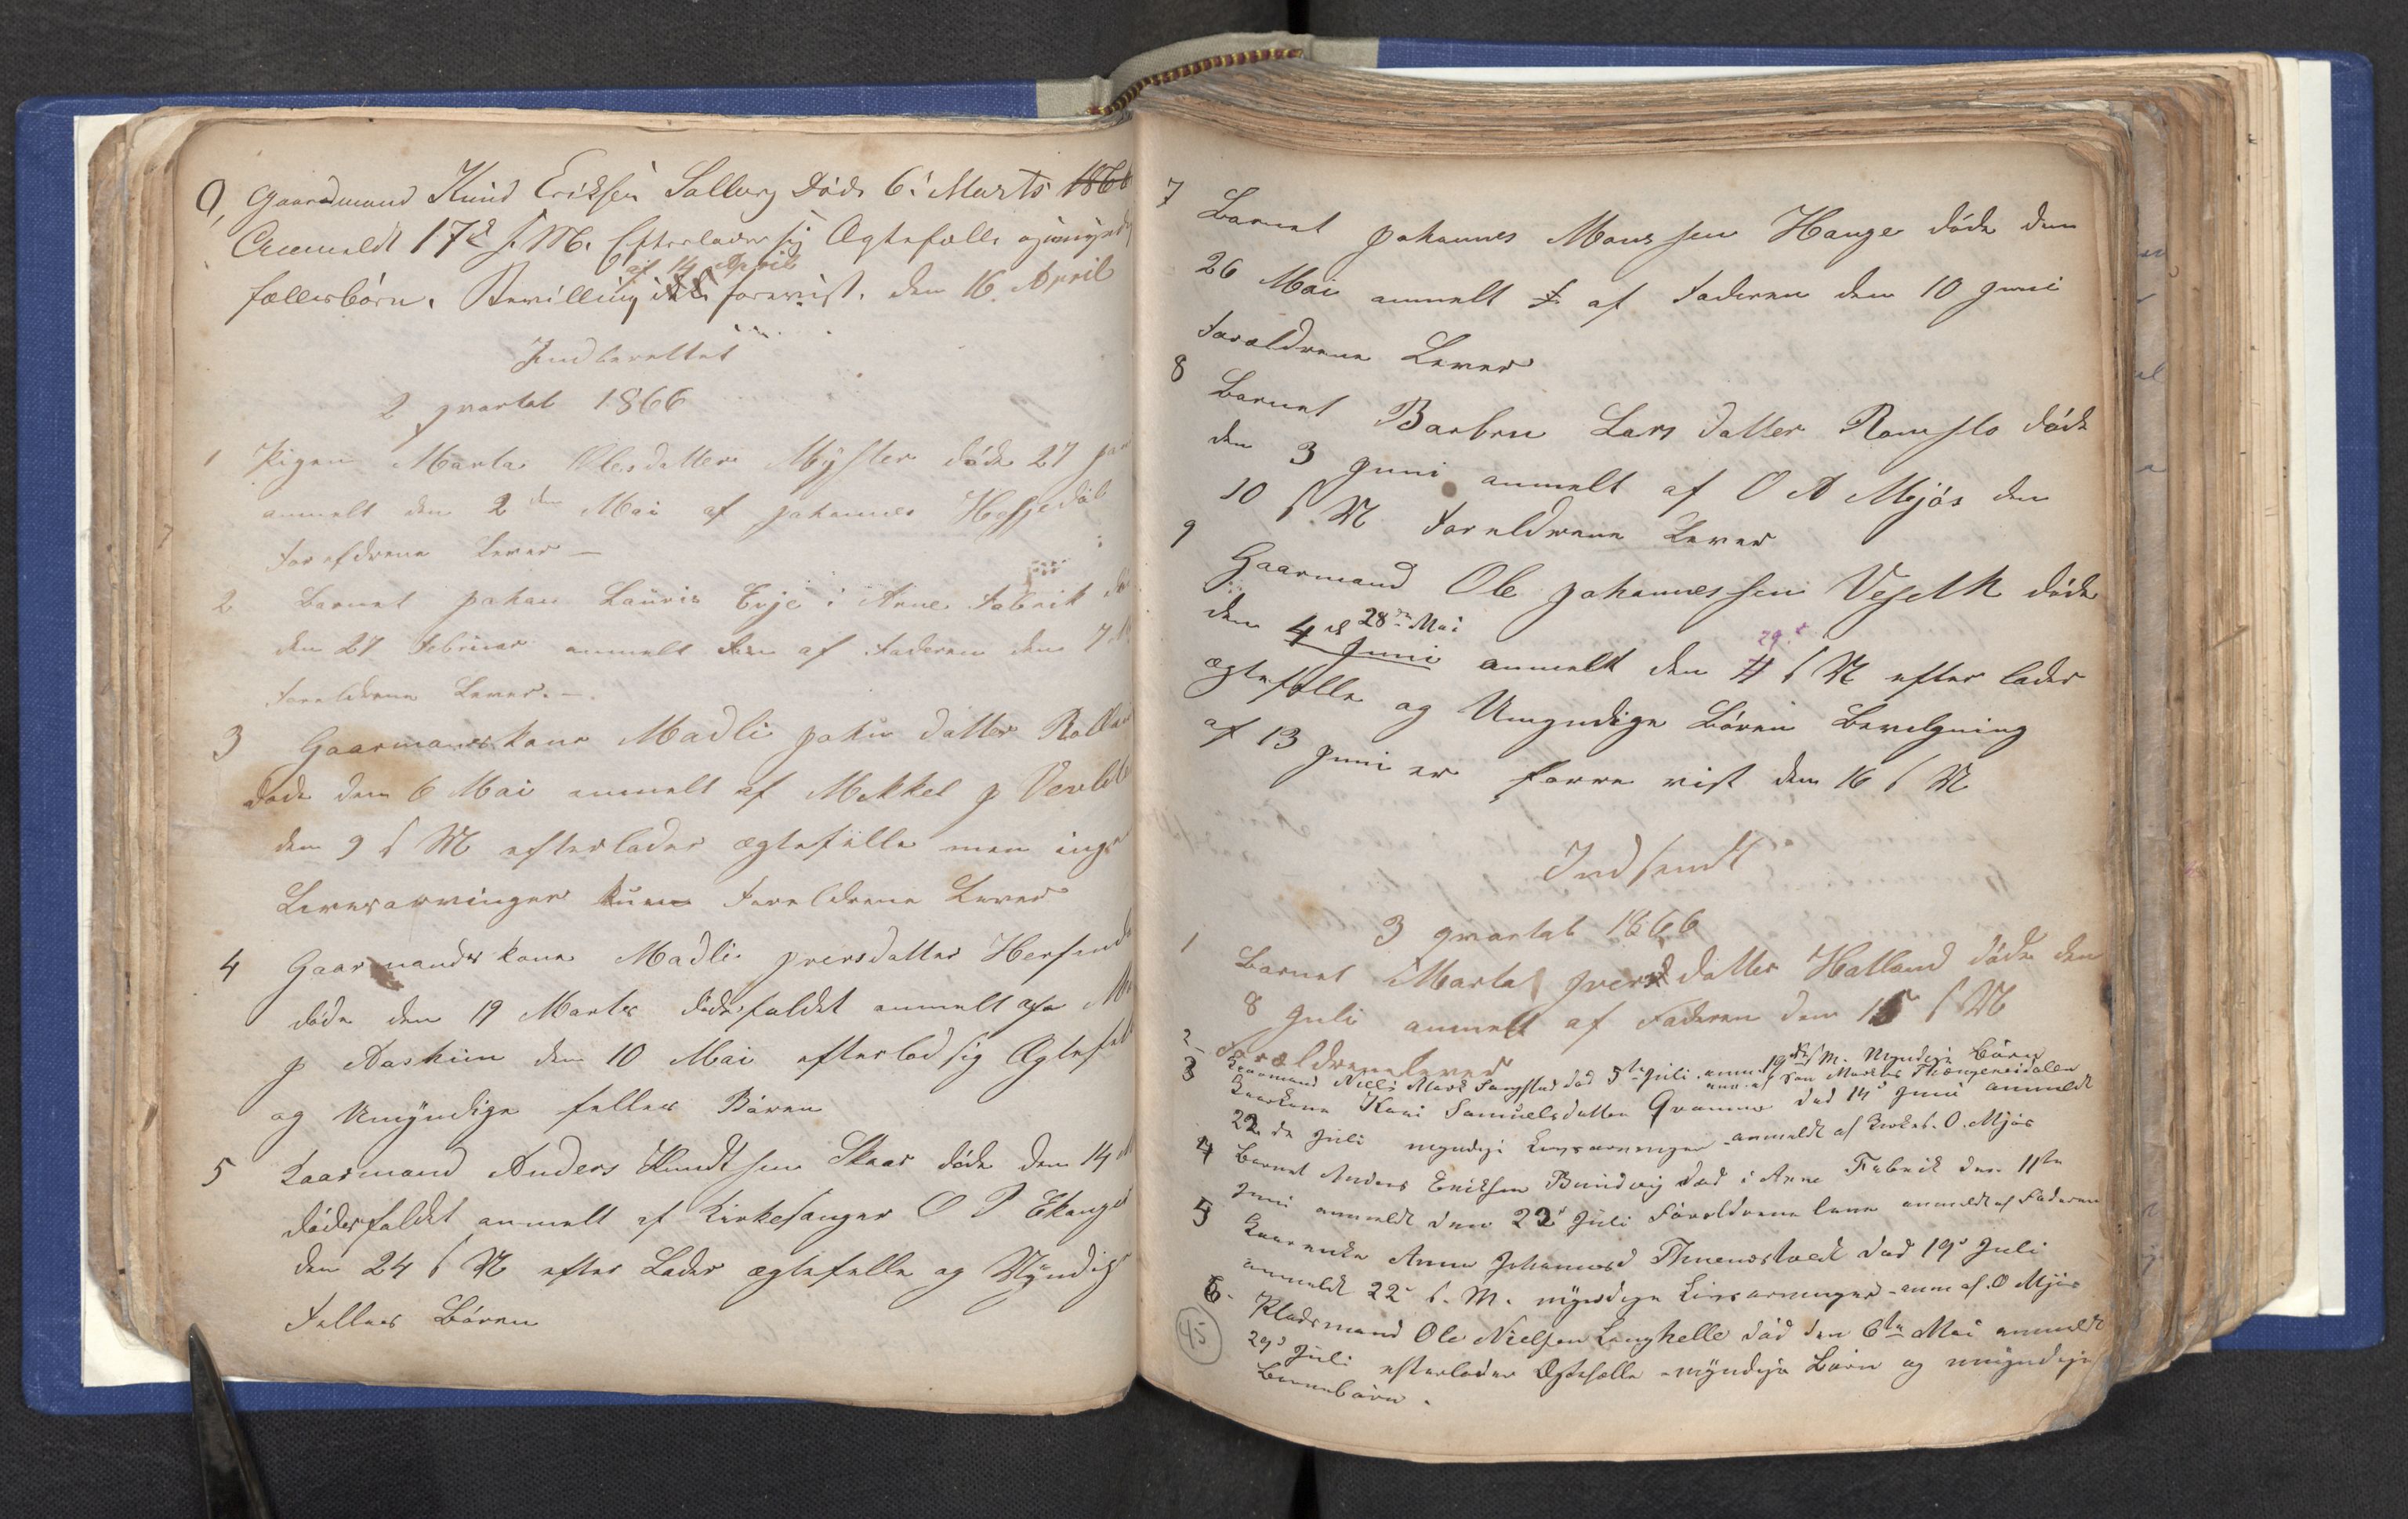 9, Gaardmand Knud Eriksen Solberg Døde 6' Marts 1866
Anmeldt 17d s. M. Efterlader sig Ægtefælle og umyndi
af 14 April
fællesbörn. Bevilling forevist. den 16. April
Indberettet
2 qvartal 1866
1 Pigen Marta Olesdatter Myster døde 27
anmelt den 2den Mai af Johannes
Foreldrene Lever —
2 Barnet Johan Lauris Evje i Arne Fabrik
den 27 Februar anmelt af Faderen den 7
Foreldrene Lever. —
3 Gaarmandskone Madli datter
døde den 6 Mai anmelt af Mikkel J
den 9 s M efterlader ægtefelle men inge
Livsarvinger Foreldrene Lever
4 Gaarmands kone Madli Iversdatter
døde den 19 Marts dødsfaldet anmelt af
J Aasheim den 10 Mai efterlod sig Ægtef
og Umyndige felles Bören
5 Kaarmand Anders Knudtsen Skaar døde den 14
dødsfaldet anmelt af Kirkesanger O P Ekanger
den 24 s M efter Lader ægtefelle og Myndige
Felles Bören
7 Barnet Johannes Monssen Hauge døde den
26 Mai anmelt af Faderen den 10 Juni
Foreldrene Lever
8 Barnet Barbru Lars datter Romslo døde
den 3 Juni anmelt af O A Mjøs den
10 s M Foreldrene Lever
9 Gaarmand Ole Johannessen Veseth døde
28de Mai
den 4de Juni anmelt den 29d s M efter lader
ægtefelle og Umyndige Bören Bevilgning
af 13 Juni er forre vist den 16 s M
Indsendt
3 qvartal 1866
1 Barnet Marta Ivers datter Hatland døde den
8 Juli anmelt af Faderen den 15 s M
Forældrene lever
2 Kaarmand Nills død 5te Juli anm. 19de s M. Myndige Börn
anm. af Søn
3 Kaarkone Kari Samuelsdatter Qvamme død 14d Juni anmeldt
22de Juli myndige Livsarvinger - anmeldt af Kirkes. O. Mjøs
4 Barnet Anders Eriksen død i Arne Fabrik den 11te
Juni anmeldt den 22d Juli Foreldrene leve anmeldt af Faderen
5 Kaarenke Anna Johannesd død 19d Juli
anmeldt 22d s. M. myndige Livsarvinger - anm af. O Mjøs
6 Pladsmand Ole Nielsen Langhelle død den 6te Mai anmeldt
29d Juli efterlader Ægtefælle - myndige Börn og umyndige
Börnebörn.
45